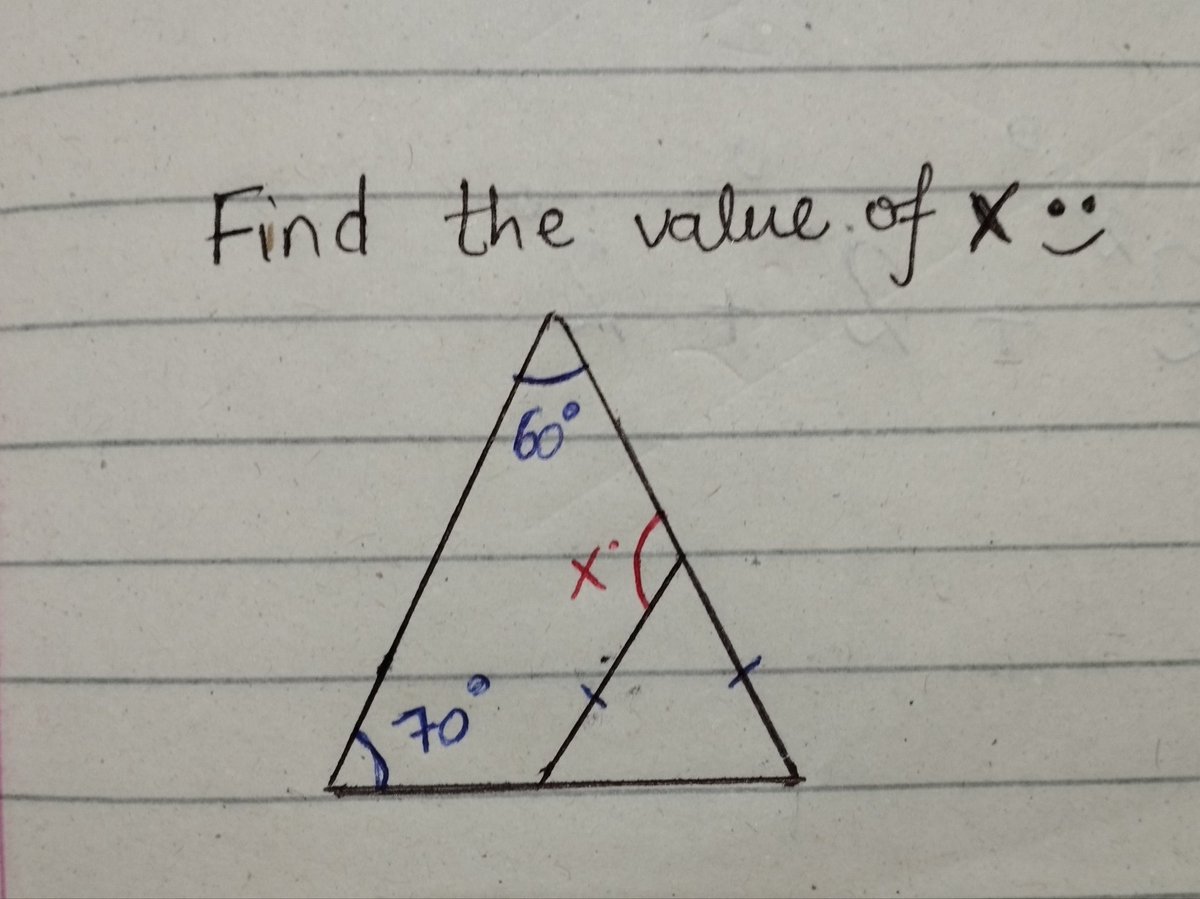 Find the value of x :)
60°
x°
70°